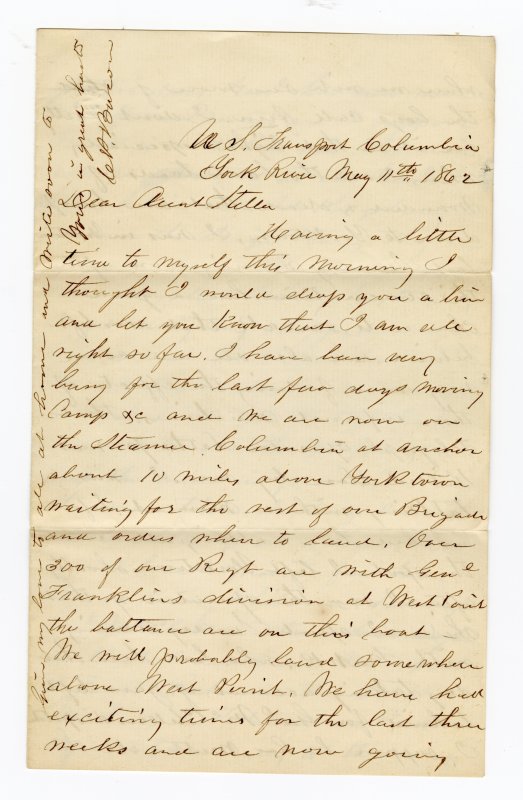 U. S. Transport Columbia
York River May 11th 1862
Dear Aunt Stella
Having a little
time to myself this morning I
thought I would drop you a line
and let you know that I am all
right so far. I have been very
busy for the last few days moving
Camp &c and we are now on
the Steamer Columbia at anchor
about 10 miles above Yorktown
waiting for the rest of our Brigade
and orders when to land. Over
300 of our Regt are with Genl
Franklins division at West Point
the ballance are on this boat
We will probably land somewhere
above West Point. We have had
exciting times for the last three
weeks and are now going
Give my love to all at home and write soon to
Yours in great haste
Bacon